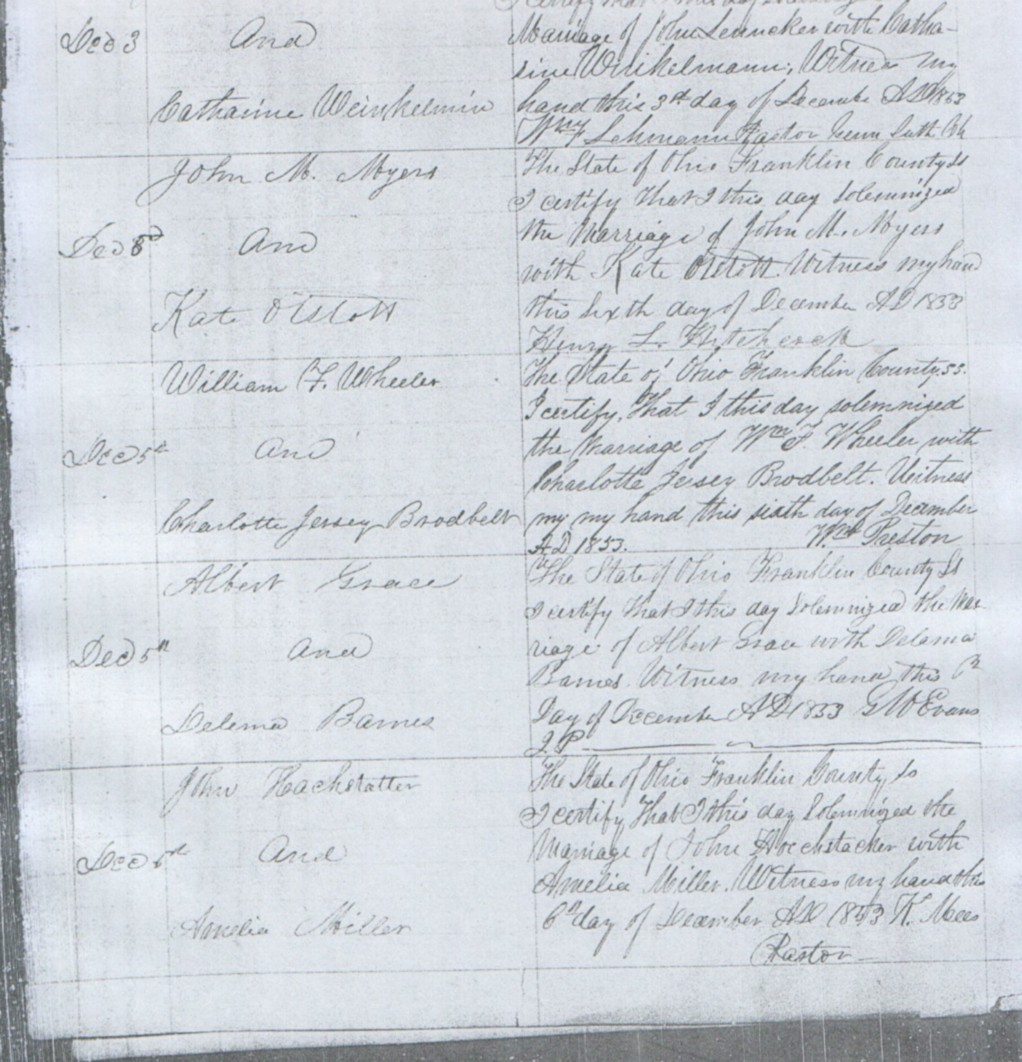 I certify that I this day
Dec 3 And
Marriage of John Lenneker with Catha-
rine Winkelmann, Witness my
Catharine Weinkelmin
hand this 3rd day of December AD 1853
Wm F Lehmann Pastor Luth Ch
John M. Myers
The State of Ohio Franklin County ss
I certify that I this day solemnized
Dec And
the Marriage of John M. Myers
with Kate Otstott. Witness my hand
Kate Otstott
this sixth day of December AD 1853
Henry L. Hitchcock
William F. Wheeler
The State of Ohio Franklin County ss.
I certify, That I this day solemnized
Dec 5th And
the Marriage of Wm F. Wheeler with
Charlotte Jersey Brodbelt. Witness
Charlotte Jersey Brodbelt
my my hand this sixth day of December
AD 1853. Wm Preston
Albert Grace
The State of Ohio Franklin County ss
I certify that I this day solemnized the Mar-
Dec 5th And
riage of Albert Grace with Delema
Barnes. Witness my hand this
Delema Barnes
day of December AD 1853 G W Evans
J. P.
John Hachstatter
The State of Ohio Franklin County ss
I certify that I this day solemnized the
Dec 6th And
Marriage of John Hochstacker with
Amelia Miller. Witness my hand this
Amelia Miller
6th day of December AD 1853 K. Mees
Pastor